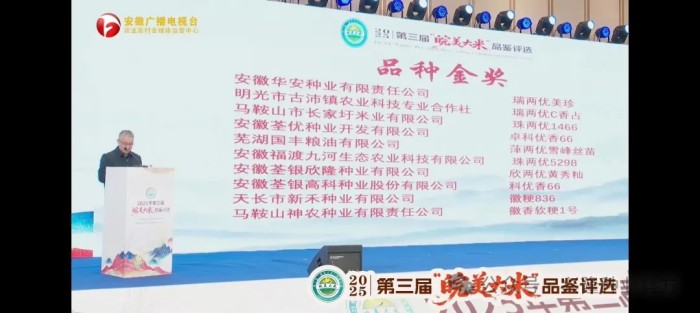 安徽广播电视台
农业农村全媒体运营中心
第三届"皖美大米"品鉴评选
品种金奖
安徽华安种业有限责任公司 瑞两优美珍
明光市古沛镇农业科技专业合作社 瑞两优C香占
马鞍山市长家圩米业有限公司 珠两优1466
安徽荃优种业开发有限公司 卓科优香66
芜湖国丰粮油有限公司 萍两优雪峰丝苗
安徽福渡九河生态农业科技有限公司 珠两优5298
安徽荃银欣隆种业有限公司 欣两优黄秀籼
安徽荃银高科种业股份有限公司 科优香66
天长市新禾种业有限公司 徽粳836
马鞍山神农种业有限责任公司 徽香软粳1号
2025年第三届
皖美大米
2025 第三届"皖美大米"品鉴评选
2025年第三